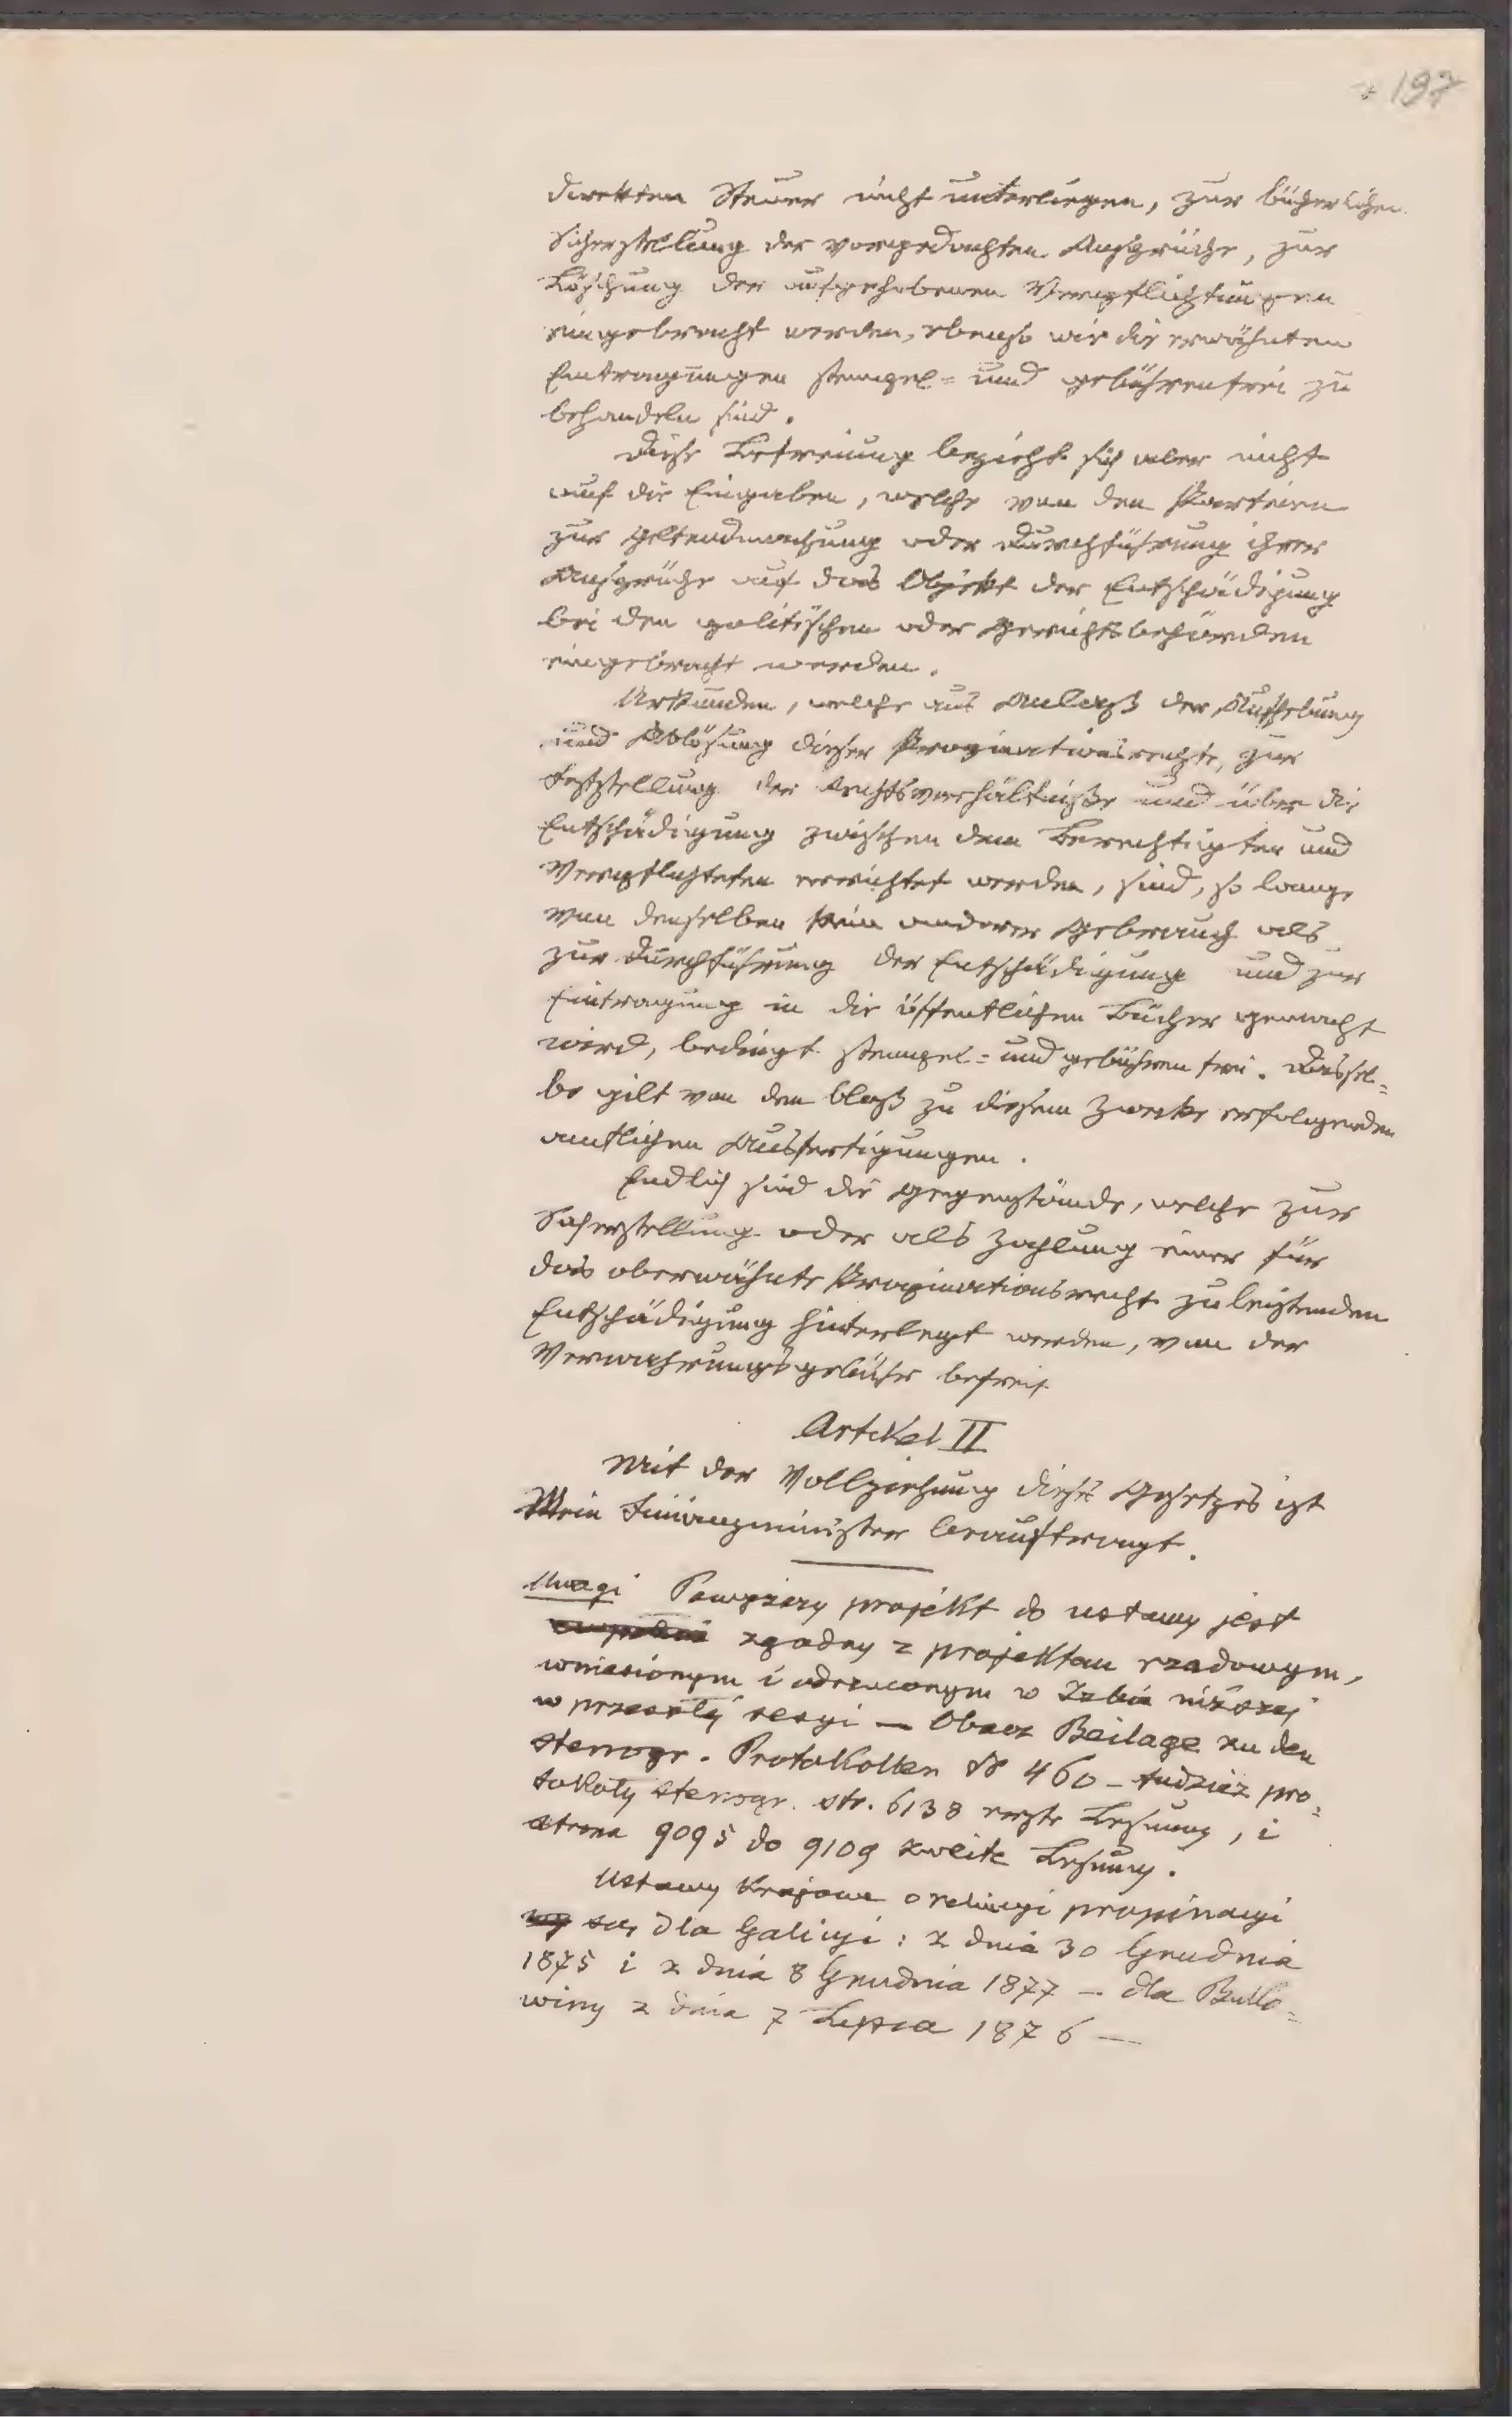 197
direkten Steuer nicht unterliegen, zur bücherlichen
Sicherstellung der vorgedachten Ansprüche, zur
Löschung der aufgehobenen Verpflichtungen
eingebracht werden, ebenso wie die erwähnten
Eintragungen stempel= und gebührenfrei zu
behandeln sind.
Diese Befreiung bezieht sich aber nicht
auf die Eingaben, welche von den Parteien
zur Geltendmachung oder Durchführung ihrer
Ansprüche auf das Objekt der Entschädigung
bei den politischen oder Gerichtsbehörden
eingebracht werden.
Urkunden, welche aus Anlaß der Aufhebung
und Ablösung dieser Propinationsrechte, zur
Feststellung der Rechtsverhältniße und über die
Entschädigung zwischen dem Berechtigten und
Verpflichteten errichtet werden, sind, so lange
von denselben kein anderer Gebrauch als
zur Durchführung der Entschädigung und zur
Eintragung in die öffentlichen Bücher gemacht
wird, bedingt stempel= und gebührenfrei. Dassel=
be gilt von den bloß zu diesem Zwecke erfolgenden
amtlichen Ausfertigungen.
Endlich sind die Gegenstände, welche zur
Sicherstellung oder als Zahlung einer für
das oberwähnte Propinationsrecht zu leistenden
Entschädigung hinterlegt werden, von der
Verwahrungsgebühr befreit
Artikel II
Mit der Vollziehung dieses Gesetzes ist
Mein Finanzminister beauftragt.
Uwagi Powyższy projekt do ustawy jest
zgodny z projektem rządowym,
wniesionym i odrzuconym w Izbie niższej
w przeszłéj sesyi — Obacz Beilage zu den
stenogr. Protokollen № 460 – tudzież pro=
tokoły stenogr. str. 6138 erste Lesung, i
strona 9095 do 9109 zweite Lesung.
Ustawy krajowe o propinacyi
są dla Galicyi: z dnia 30 Grudnia
1875 i z dnia 8 Grudnia 1877 — dla Buko=
winy z dnia 7 Lipca 1876 —